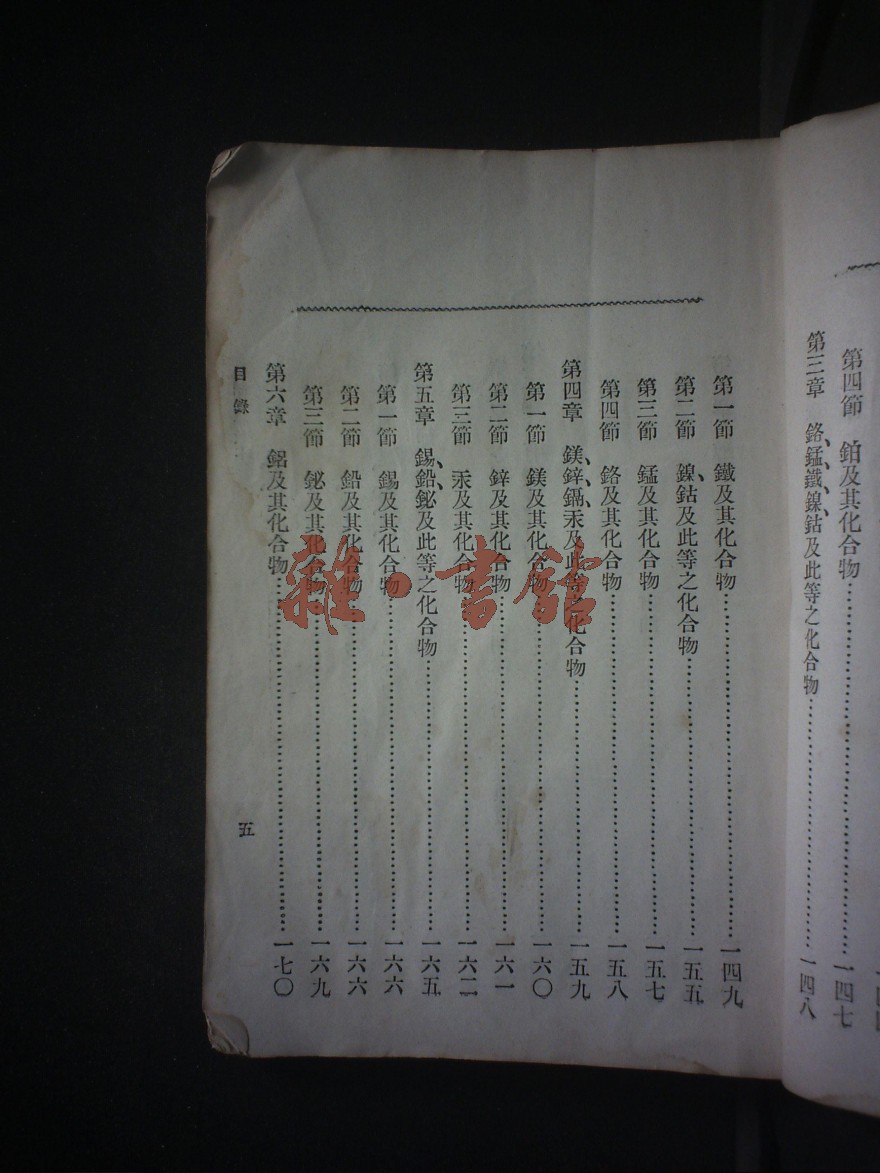 第四節　鉑及其化合物……一四七
第三章　鉻、錳、鐵、鎳、鈷及此等之化合物……一四八
第一節　鐵及其化合物……一四九
第二節　鎳、鈷及此等之化合物……一五五
第三節　錳及其化合物……一五七
第四節　鉻及其化合物……一五八
第四章　鎂、鋅、鎘、汞及此等之化合物……一五九
第一節　鎂及其化合物……一六〇
第二節　鋅及其化合物……一六一
第三節　汞及其化合物……一六二
第五章　錫、鉛、鉍及此等之化合物……一六五
第一節　錫及其化合物……一六六
第二節　鉛及其化合物……一六六
第三節　鉍及其化合物……一六九
第六章　鋁及其化合物……一七〇
目錄
五
雜·書館